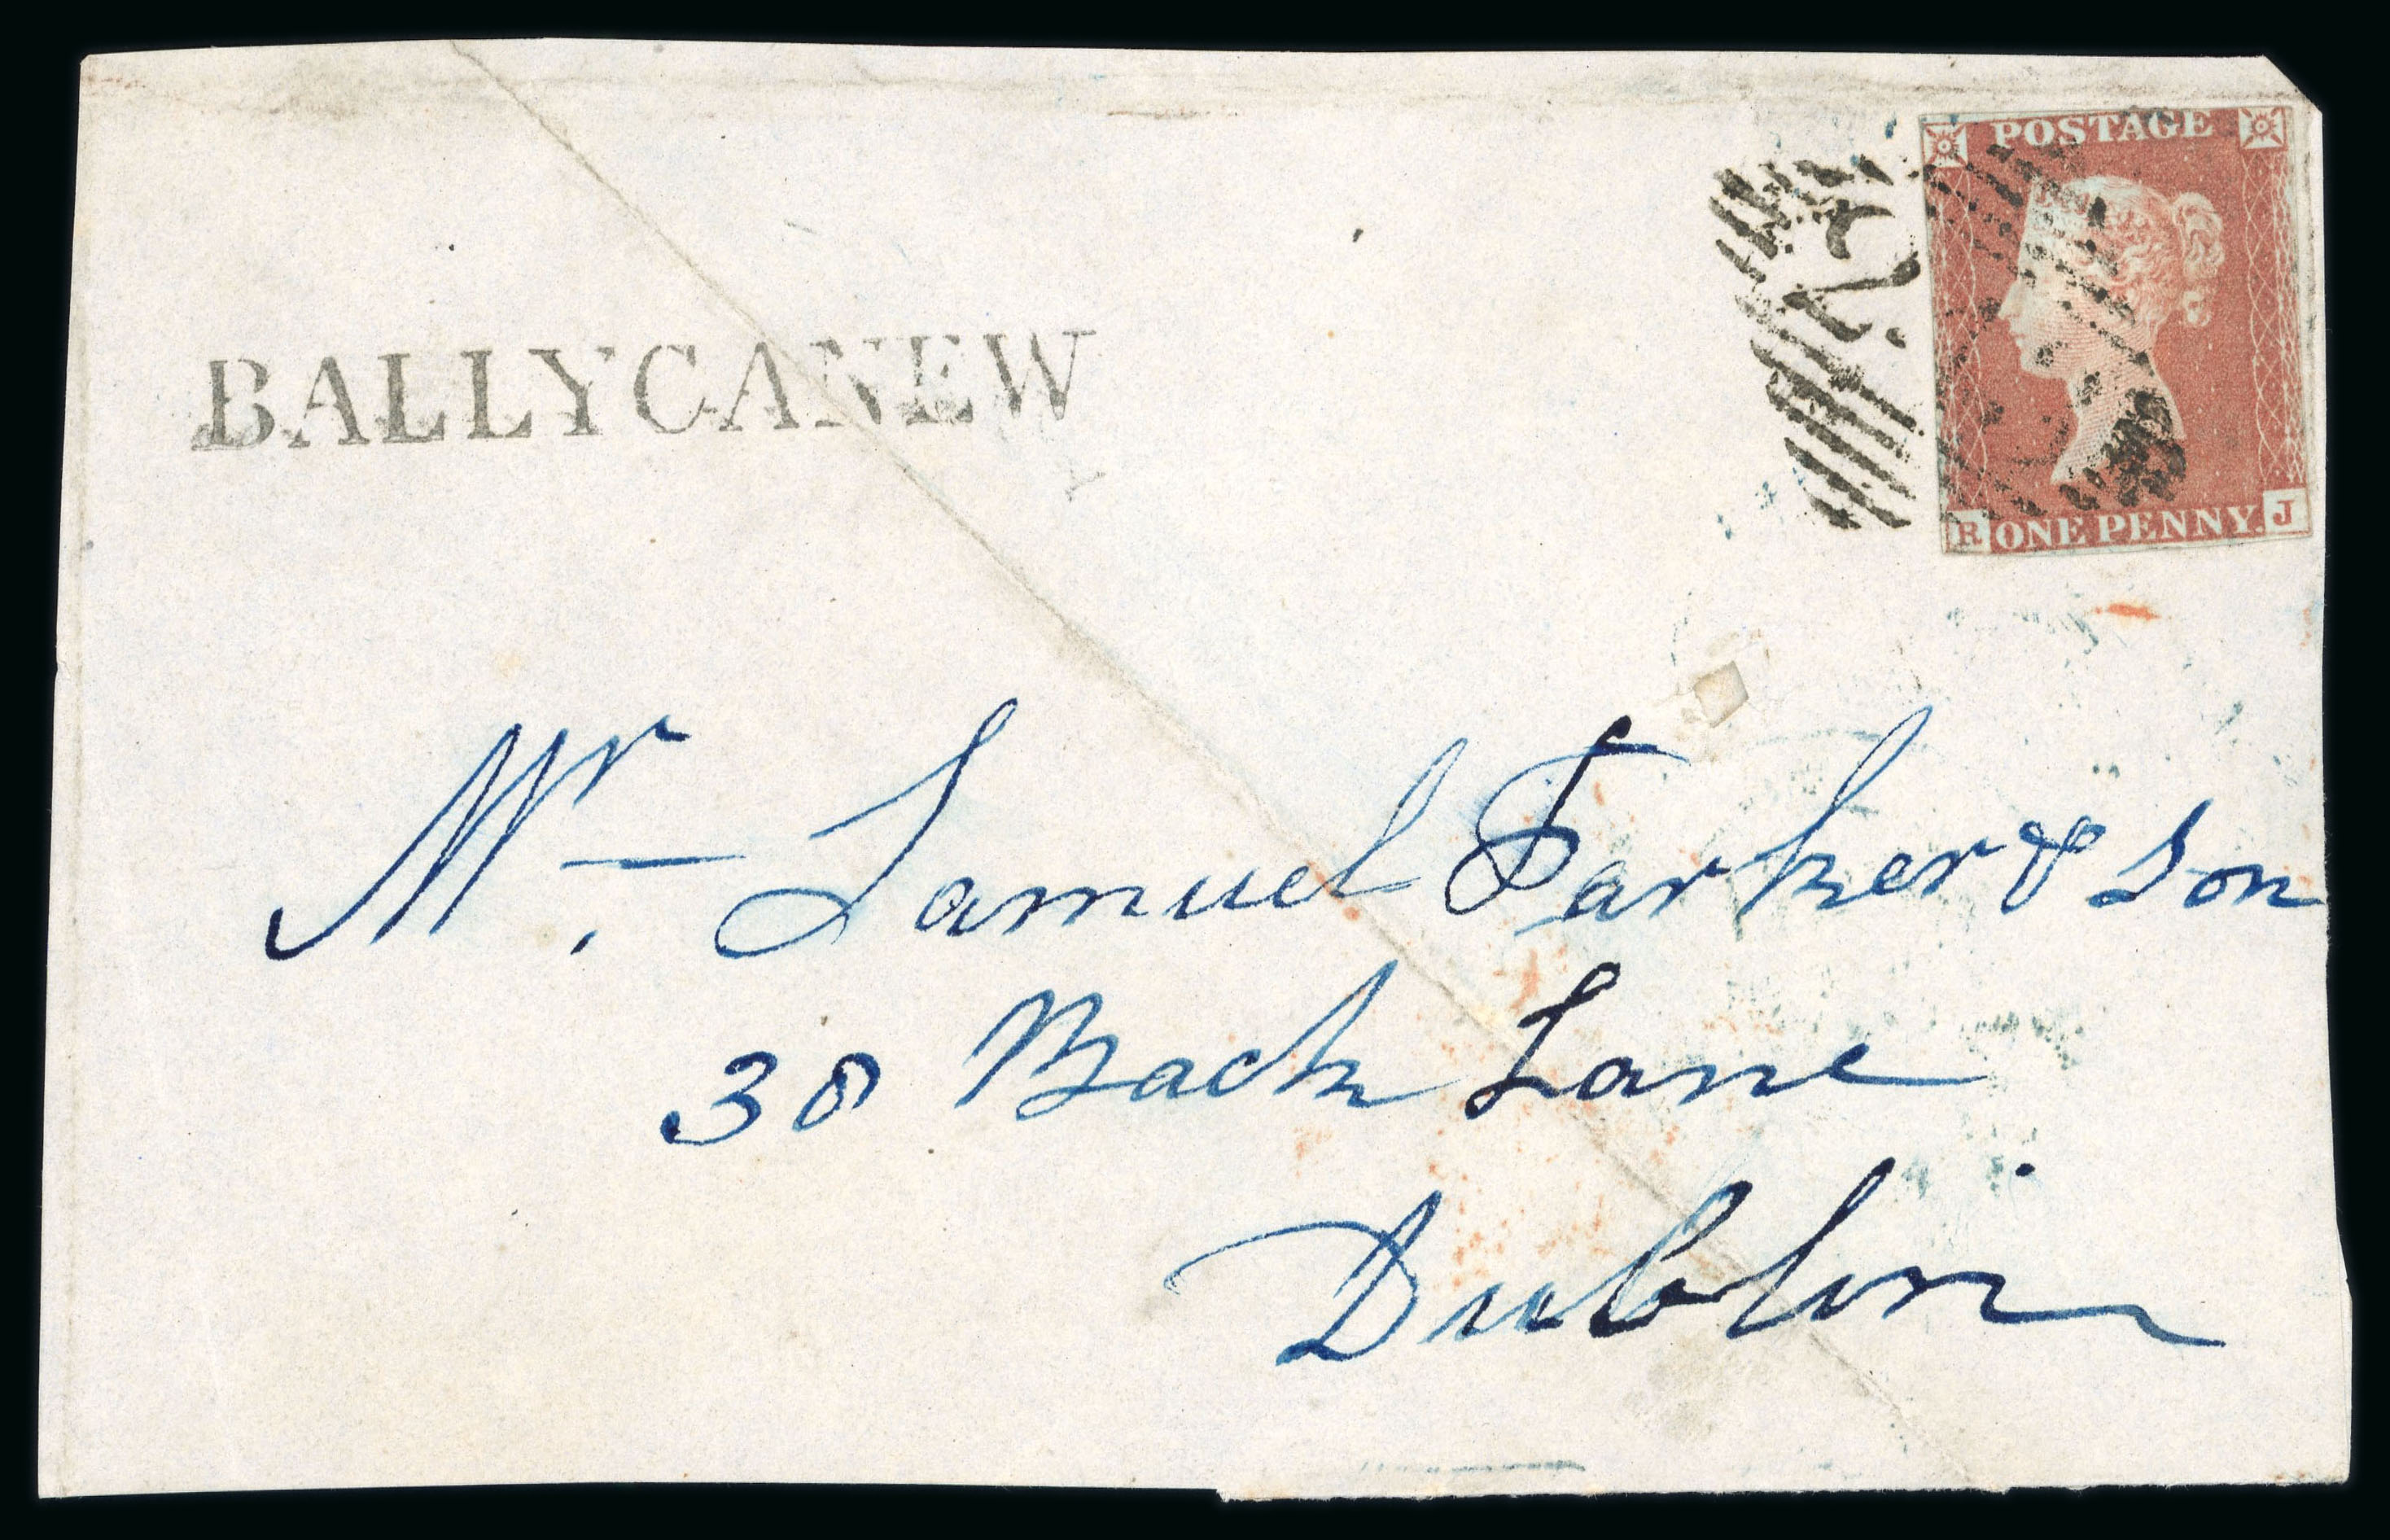 POSTAGE
BALLYCANEW
R ONE PENNY. J
Mr. Samuel Parker & Son
38 Back Lane
Dublin